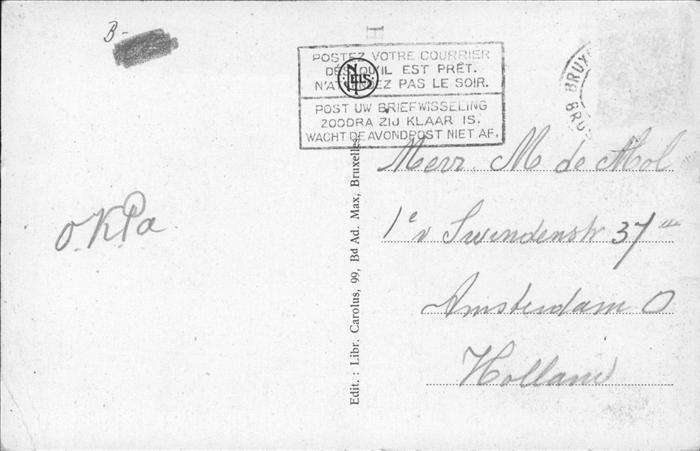 B-
POSTEZ VOTRE COURRIER
DÈS QU'IL EST PRÊT.
N'ATTENDEZ PAS LE SOIR.
POST UW BRIEFWISSELING
ZOODRA ZIJ KLAAR IS.
WACHT DE AVONDPOST NIET AF.
NELS
Edit. : Libr. Carolus, 99, Bd Ad. Max, Bruxelles
O.K. Pa
Mevr. M de Mol
1e v Swindenstr 37
Amsterdam O
Holland